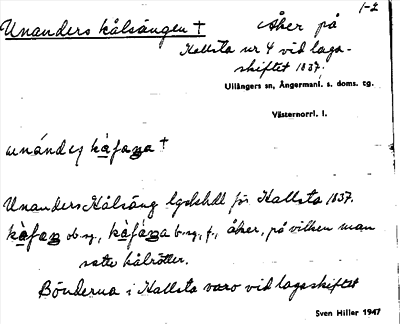 1-2
Unanders kålsängen †
Åker på
Kallsta nr 4 vid laga-
skiftet 1837.
Ullångers sn, Ångermanl. s. doms. tg.
Västernorrl. l.
Unanders Kålsäng lgdshdl för Kallsta 1837.
ob sg, b sg, f., åker, på vilken man
satte kålrötter.
Bönderna i Kallsta varo vid lagaskiftet
Sven Hiller 1947